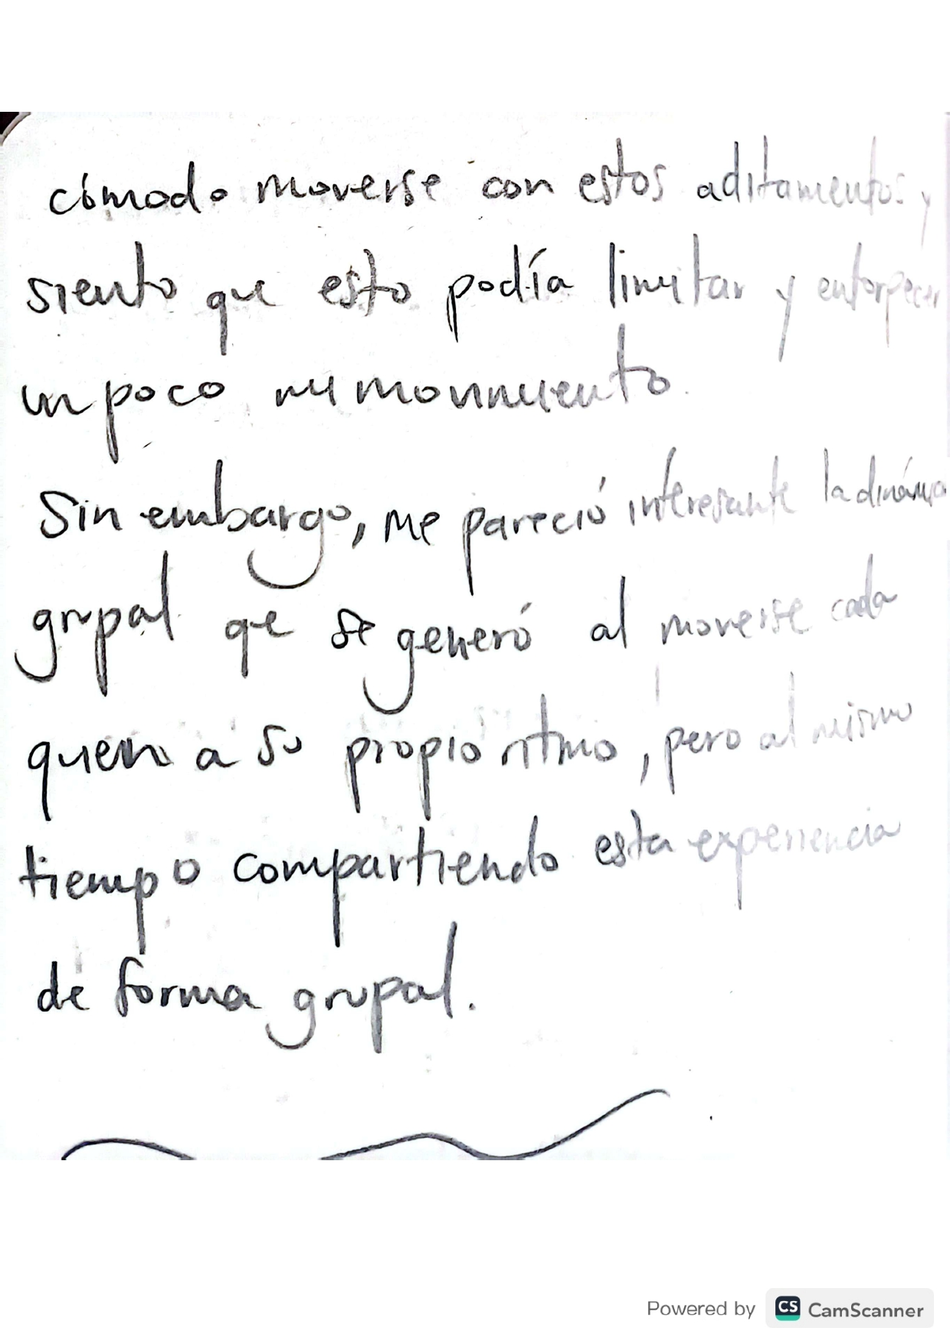 cómodo moverse con estos aditamentos y
siento que esto podía limitar y entorpecer
un poco mi movimiento.
Sin embargo, me pareció interesante la dinámica
grupal que se generó al moverse cada
quien a su propio ritmo, pero al mismo
tiempo compartiendo esta experiencia
de forma grupal.
Powered by CS CamScanner